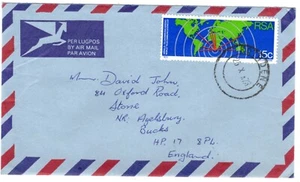 PER LUGPOS
BY AIR MAIL
PAR AVION
RSA
15c
David John,
84 Oxford Road,
Stone
NR. Aylesbury,
Bucks
HP. 17 8PL.
England.